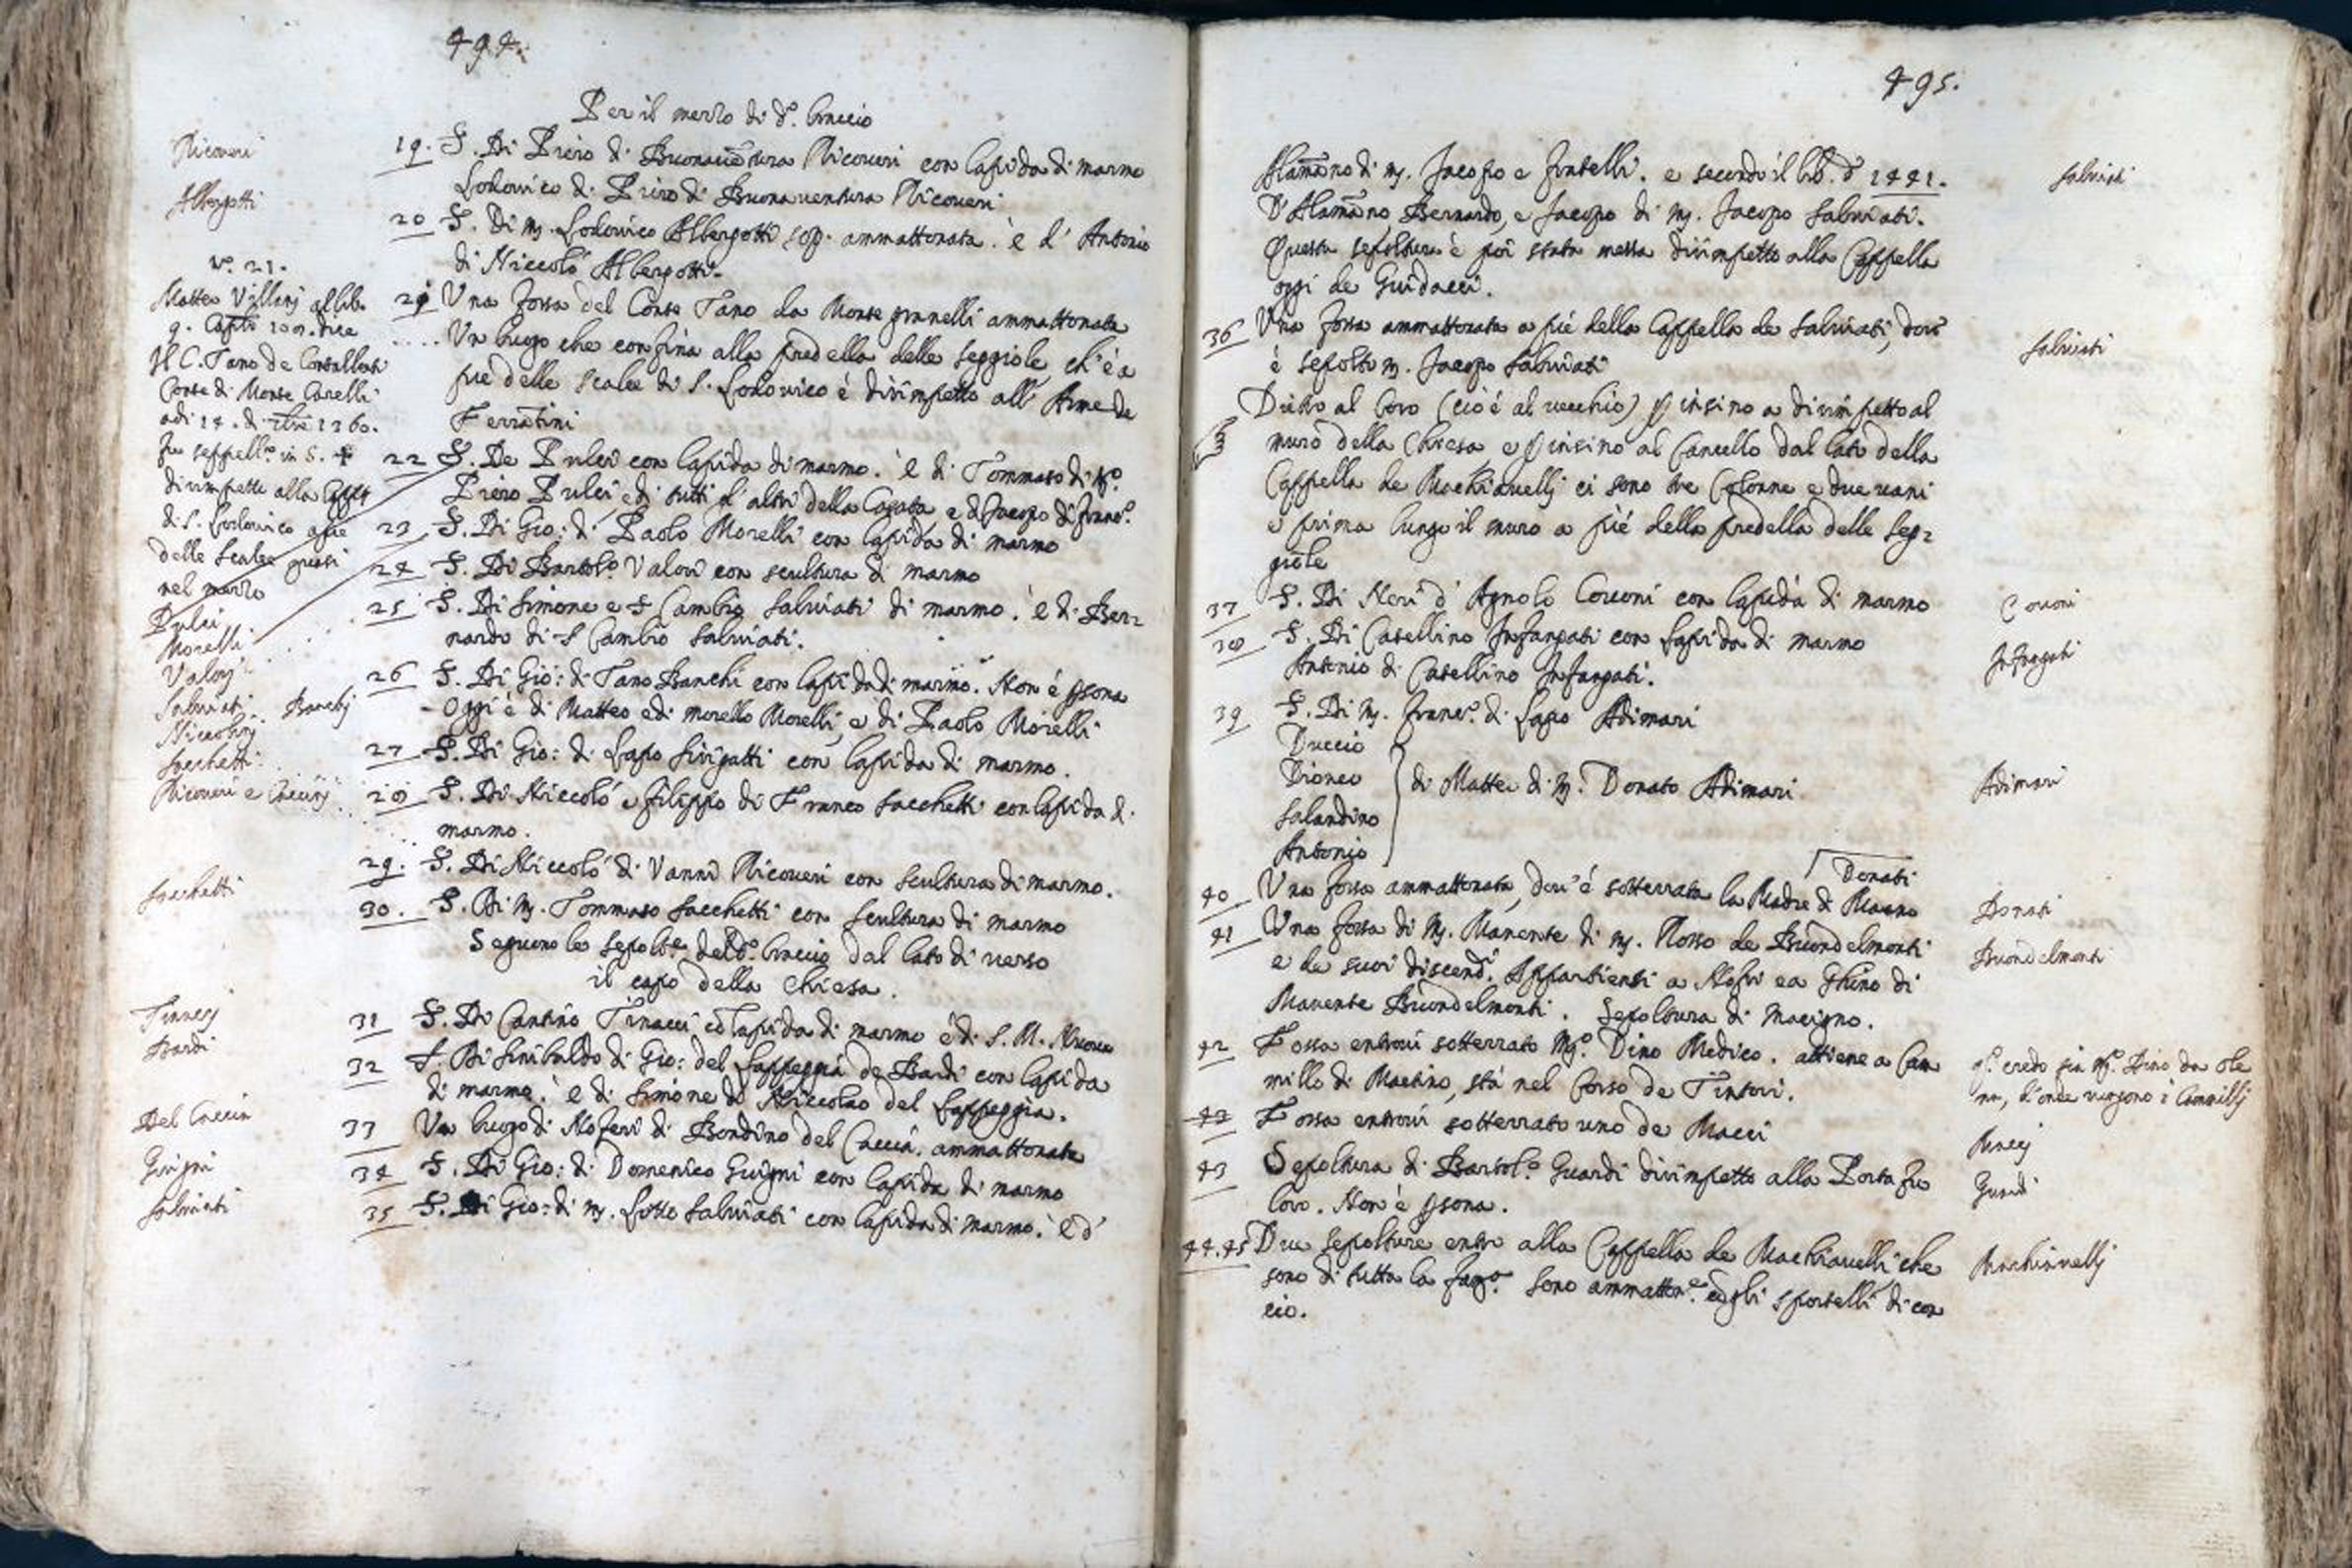 494.
Per il mezzo di d.º braccio
Ricoveri
19. S. Di Piero di Buonavētura Ricoveri con lapida di marmo
Lodovico di Piero di Buonaventura Ricoveri
Albergotti
20 S. Di M. Lodovico Albergotti sep. ammattonata. è d' Antonio
di Niccolò Albergotti.
nº. 21.
Matteo Villanj al lib.
9. Capito 109. dice
Il C. Tano de Contalberti
Conte di Monte Carelli
adi 14. di 7bre 1360.
fu seppell.º in S. +
dirimpetto alla Capp.
di S. Lodovico a pie
delle scalee quasi
nel mezzo
21 Una fossa del Conte Tano da Monte granelli ammattonata
.... Un luogo che confina alla predella delle seggiole, ch'è a
pie delle scalee di S. Lodovico è dirimpetto all' Arme de
Ferrātini
22 S. De Pulci con lapida di marmo. è di Tommaso di
Piero Pulci, e di tutti l' altri della Casata e d Jacopo di Franc.º
23 S. Di Gio: di Paolo Morelli con lapida di marmo
24 S. Di Bartol.º Valori con scultura di marmo
25 S. Di Simone e S Cambio Salviati di marmo. è di Ber=
nardo di S Cambio Salviati.
26 S. Di Gio: di Tano Banchi con lapida di marmo. Non è psona
Oggi è di Matteo e di Morello Morelli, e di Paolo Morelli
27 S. Di Gio: di Lapo Sirigatti con lapida di marmo.
28 S. Di Niccolò e Filippo di Franco Sacchetti con lapida d.
marmo.
29. S. Di Niccolò di Vanni Ricoveri con scultura di marmo.
30. S. Di M. Tommaso Sacchetti con scultura di marmo
Pulci
Morelli
Valorj
Salviati. Banchj
Sacchetti
Ricoveri e
Sacchetti
Seguono le sepolt.e del d.º braccio dal lato di verso
il capo della Chiesa.
31 S. Di Cantino Tinacci cō lapida di marmo è di S. M. Nuova
32 S. Di Sinibaldo di Gio: del Lappeggia de Bardi con lapida
di marmo. è di Simone di Niccolao del Lappeggia.
33 Un luogo di Noferi di Bondino del Caccia. ammattonato
34 S. Di Gio: di Domenico Giugni con lapida di marmo
35 S. Di Gio: di M. Lotto Salviati con lapida di marmo. È d'
Bardi
Del Caccia
Giugni
Salviati
495.
Alamāno di M. Jacopo e fratelli. e secondo il lib. d 1441.
D'Alamāno, Bernardo, e Jacopo di M. Jacopo Salviati.
Questa sepoltura è poi stata messa dirimpetto alla Cappella
oggi de Guidacci.
Salviati
36 Una fossa ammattonata a piè della Cappella de Salviati, dove
è sepolto M. Jacopo Salviati
Salviati
Dietro al Coro (cioè al vecchio) p insino a dirimpetto al
muro della Chiesa e p insino al Cancello dal lato della
Cappella de Machiavellj ci sono tre Colonne e due vani
e prima lungo il muro a piè della predella delle seg=
giole
37 S. Di Neri d' Agnolo Corconi con lapida di marmo
38 S. Di Catellino Infangati con lapida di marmo
Antonio di Catellino Infangati.
39 S. Di M. Franc.º di Lapo Adimari
Duccio
Dioneo
Salandino
Antonio
di Matteo di M. Donato Adimari
Infangati
Adimari
Donati
40 Una fossa ammattonata, dov' è sotterrata la Madre di Maano
41 Una fossa di M. Manente di M. Rosso de Buondelmonti
e de suoi discend.i Appartiensi a Nofri e a Ghino di
Manente Buondelmonti. Sepoltura di Macigno.
42 Fossa entrovi sotterrato M.º Dino Medico. attiene a Cam
millo di Martino, stà nel Corso de Tintori.
43 Fossa entrovi sotterrato uno de Macci
43 Sepoltura di Bartol.º Guardi dirimpetto alla Porta fu
Coro. Non è psona.
44.45 Due sepolture entro alla Cappella de Machiavelli che
sono di tutta la fam.ª sono ammatton.e cō gli sportelli di con
cio.
Donati
Buondelmonti
q.º credo sia M.º Dino da Ole
na, d'onde vengono i Cammillj
Guardi
Machiavellj